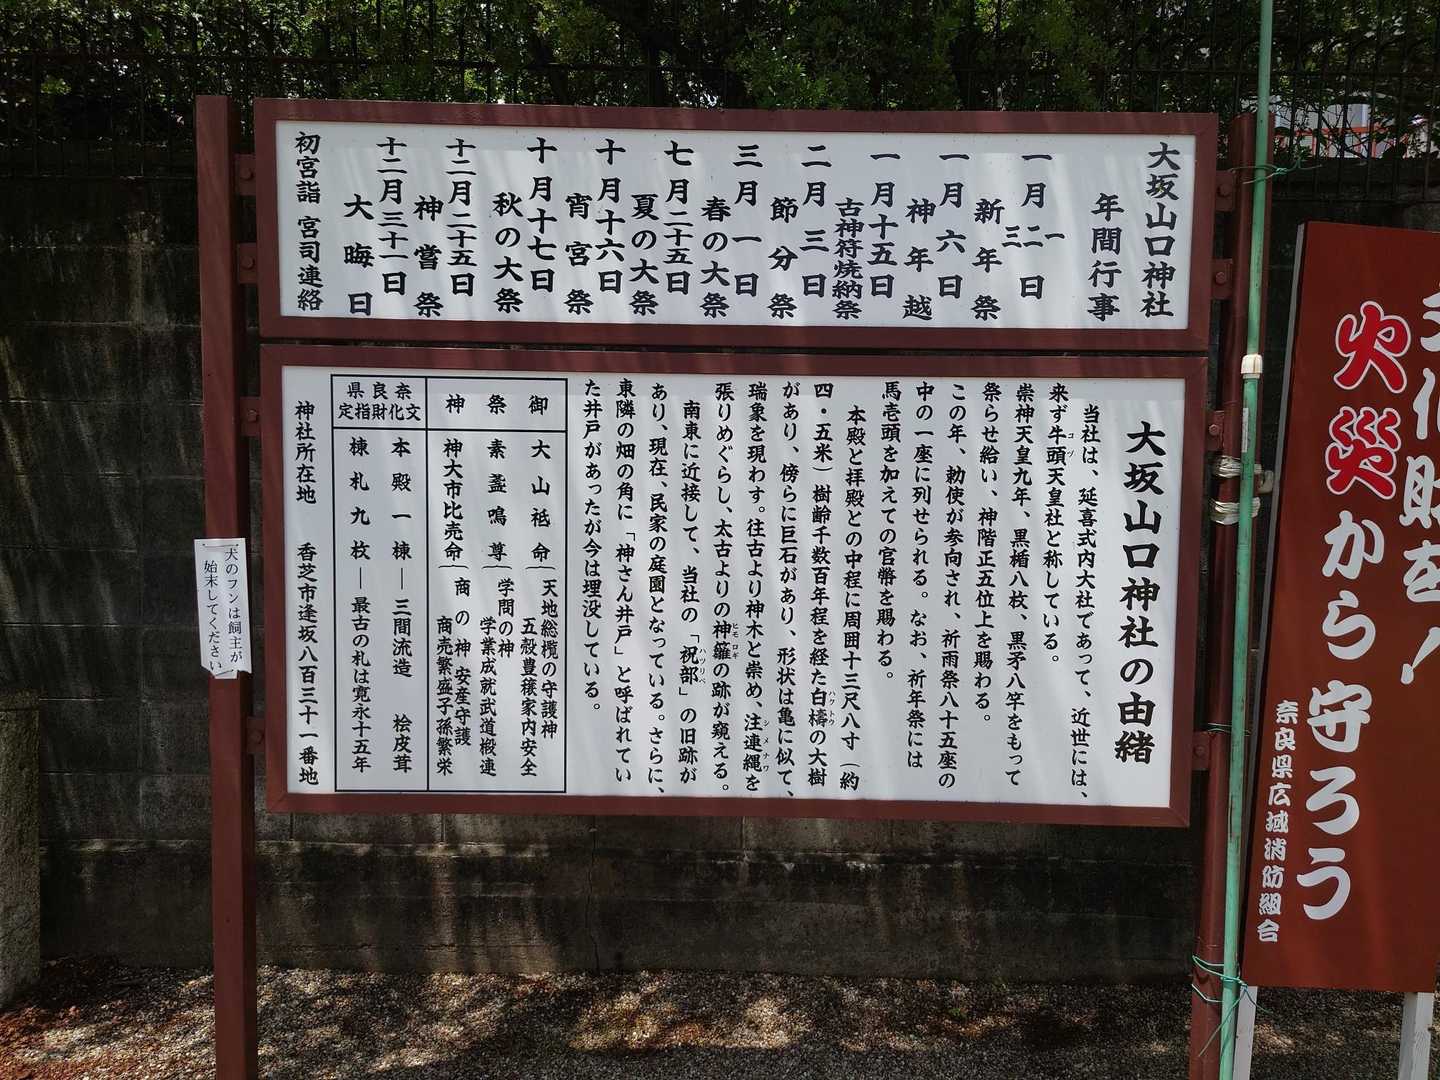 大坂山口神社
年間行事
一月一二三日
新年祭
一月六日
神年越
一月十五日
古神符焼納祭
二月三日
節分祭
三月一日
春の大祭
七月二十五日
夏の大祭
十月十六日
宵宮祭
十月十七日
秋の大祭
十二月二十五日
神嘗祭
十二月三十一日
大晦日
初宮詣 宮司連絡
大坂山口神社の由緒
当社は、延喜式内大社であって、近世には、
来ず牛頭天皇社と称している。
ゴヅ
崇神天皇九年、黒楯八枚、黒矛八竿をもって
祭らせ給い、神階正五位上を賜わる。
この年、勅使が参向され、祈雨祭八十五座の
中の一座に列せられる。なお、祈年祭には
馬壱頭を加えての官幣を賜わる。
本殿と拝殿との中程に周囲十三尺八寸(約
四・五米)樹齢千数百年程を経た白檮の大樹
ハクトウ
があり、傍らに巨石があり、形状は亀に似て、
瑞象を現わす。往古より神木と崇め、注連縄を
シメナワ
張りめぐらし、太古よりの神籬の跡が窺える。
ヒモロギ
南東に近接して、当社の「祝部」の旧跡が
ハツリベ
あり、現在、民家の庭園となっている。さらに、
東隣の畑の角に「神さん井戸」と呼ばれてい
た井戸があったが今は埋没している。
御祭神
大山祗命(天地総欖の守護神
五殻豊穣家内安全
素盞嗚尊(学問の神
学業成就武道椴連
神大市比売命(商の神 安産守護
商売繁盛子孫繁栄
奈良県文化財指定
本殿一棟―三間流造 桧皮茸
棟札九枚―最古の札は寛永十五年
神社所在地 香芝市逢坂八百三十一番地
犬のフンは飼主が
始末してください
文化財を!
火災から守ろう
奈良県広域消防組合